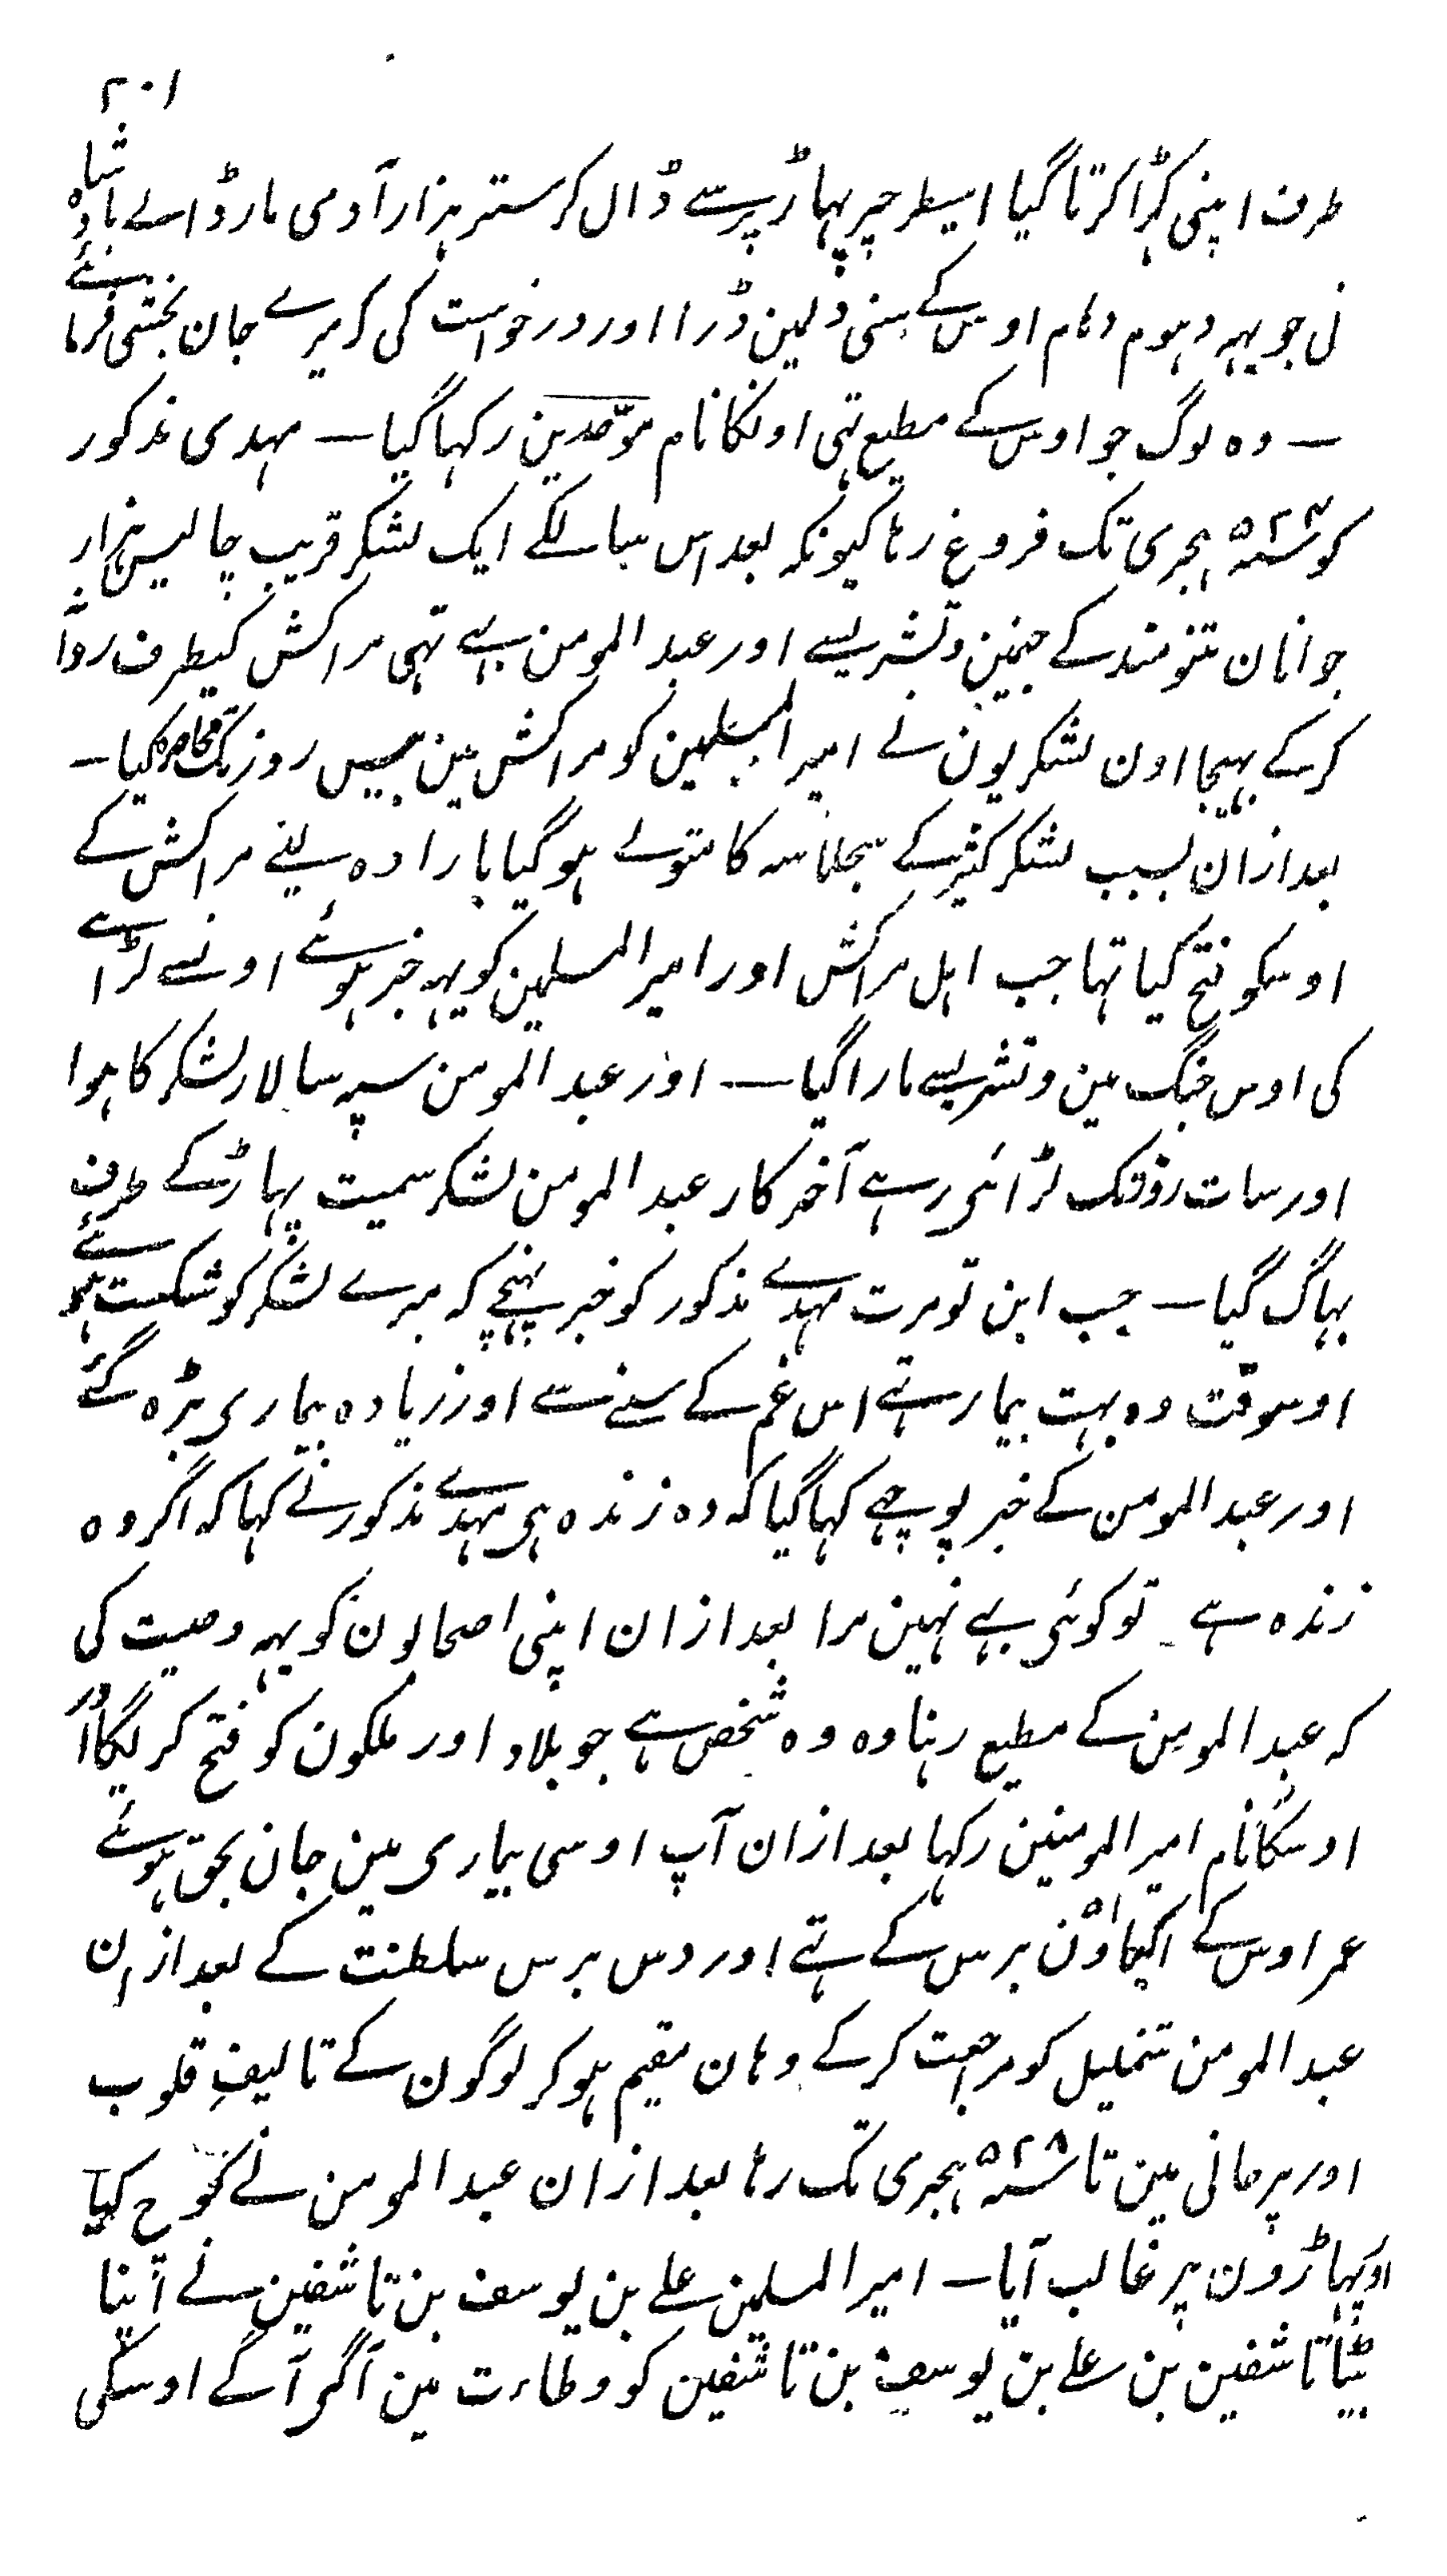 ۲۰۱
طرف اپنی کہڑا کرتا گیا اسیطرحپر پہاڑ پر سے ڈال کر ستر ہزار آدمی مار ڈالے بادشاہ
ل جو یہہ دہوم دہام اوس کے سنی دلمین ڈرا اور درخواست کی کہ میرے جان بخشی فرمائے
— وہ لوگ جو اوس کے مطیع تہی اونکا نام موّحدین رکہا گیا — مہدی مذکور
کو ۵۲۴ سنہ ہجری تک فروغ رہا کیونکہ بعد اس سال کے ایک لشکر قریب چالیس ہزار
جوانان تنومند کے جنمین ونشریسے اور عبد المومن بہے تہی مراکش کیطرف روانا
کر کے بہیجا اون لشکریون نے امیر المسلمین کو مراکش مین بیس روز تک محاصرہ کیا —
بعد ازان بسبب لشکر کثیر کے سجلماسہ کا متولے ہو گیا بارادہ لینے مراکش کے
اوسکو فتح کیا تہا جب اہل مراکش اور امیر المسلمین کو یہہ خبر ہوئے اونسے لڑاے
کی اوس جنگ مین ونشریسے مارا گیا — اور عبد المومن سپہ سالار لشکر کا ہوا
اور سات روز تک لڑائی رہے آخر کار عبد المومن لشکر سمیت پہاڑ کے طرف
بہاگ گیا — جب ابن تومرت مہدے مذکور کو خبر پہنچے کہ میرے لشکر کو شکست ہوئے
اوسوقت وہ بہت بیمار تہے اس غم کے سننے سے اور زیادہ بیماری بڑہ گئے
اور عبد المومن کے خبر پوچہے کہا گیا کہ وہ زندہ ہی مہدے مذکور نے کہا کہ اگر وہ
زندہ ہے تو کوئی بہے نہین مرا بعد ازان اپنی اصحابون کو یہہ وصیت کی
کہ عبد المومن کے مطیع رہنا وہ وہ شخص ہے جو بلاد اور ملکون کو فتح کریگا اور
اوسکا نام امیر المومنین رکہا بعد ازان آپ اوسی بیماری مین جان بحق ہوئے
عمر اوس کے اکیاون ۵۱ برس کے تہے اور دس برس سلطنت کے بعد ازان
عبد المومن تنملیل کو مراجعت کر کے وہان مقیم ہو کر لوگون کے تالیفِ قلوب
اور مین تا ۵۲۸ سنہ ہجری تک رہا بعد ازان عبد المومن نے کوچ کیا
اور پہاڑون پر غالب آیا — امیر المسلمین علے بن یوسف بن تاشفین نے اپنا
بیٹا تاشفین بن علے بن یوسف بن تاشفین کو وطاءت مین آگے آگے اوسکی